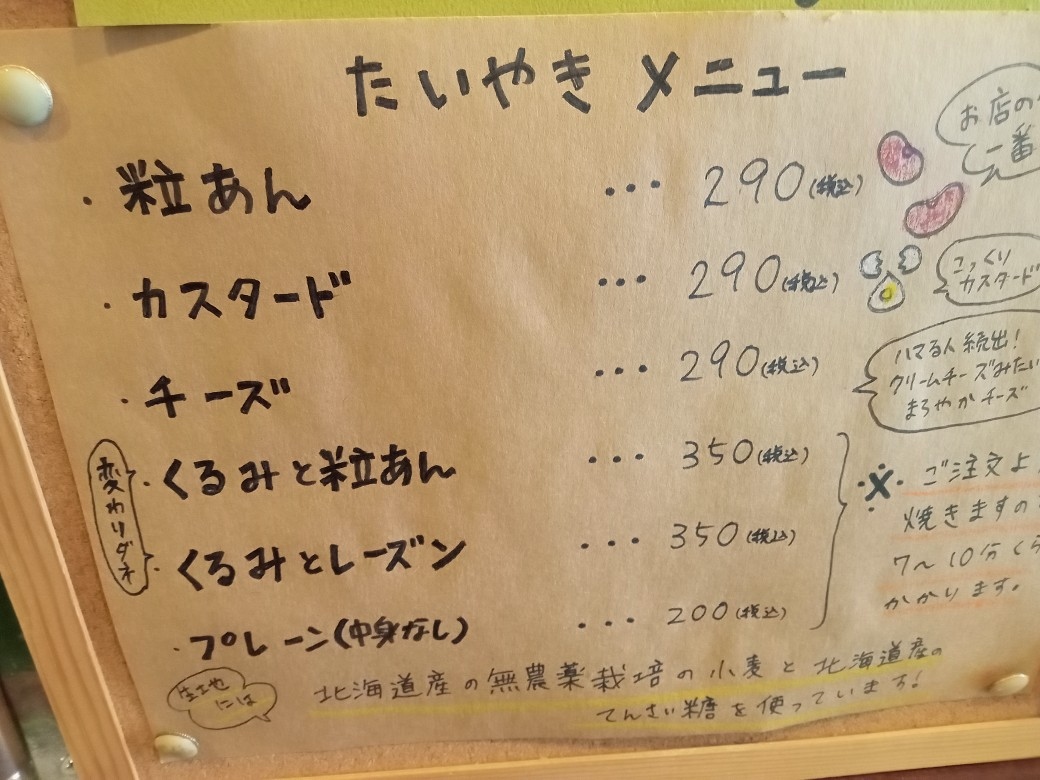 たいやき メニュー
・粒あん ・・・ 290(税込)
お店の
一番
・カスタード ・・・ 290(税込)
こっくり
カスタード
・チーズ ・・・ 290(税込)
ハマる人続出!
クリームチーズみたい
まろやかチーズ
変わりダネ
・くるみと粒あん ・・・ 350(税込)
・くるみとレーズン ・・・ 350(税込)
・プレーン(中身なし) ・・・ 200(税込)
※ ご注文よ
焼きますの
7〜10分くら
かかります。
生地
には
北海道産の無農薬栽培の小麦と北海道産の
てんさい糖を使っています!